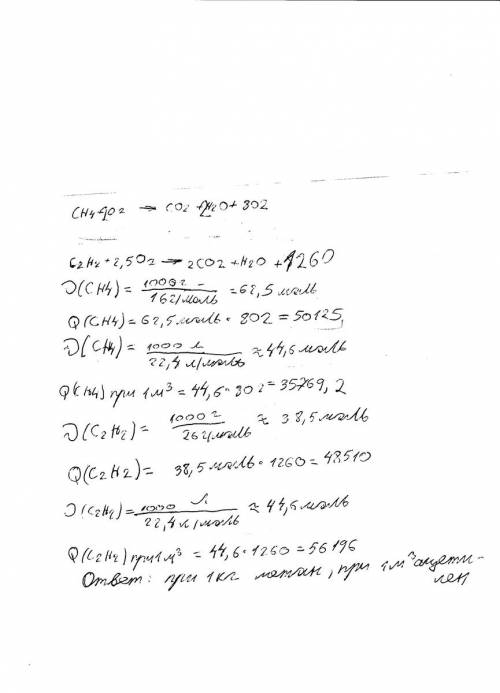 CH4+2O2 → CO2 + 2H2O + 802
C2H2 + 2,5O2 → 2CO2 + H2O + 1260
Ͻ(CH4) = 1000г / 16г/моль = 62,5 моль
Q(CH4) = 62,5 моль · 802 = 50125
Ͻ(CH4) = 1000 л / 22,4 л/моль ≈ 44,6 моль
Q(CH4) при 1 м³ = 44,6 · 802 = 35769,2
Ͻ(C2H2) = 1000г / 26г/моль ≈ 38,5 моль
Q(C2H2) = 38,5 моль · 1260 = 48510
Ͻ(C2H2) = 1000 л / 22,4 л/моль ≈ 44,6 моль
Q(C2H2) при 1 м³ = 44,6 · 1260 = 56196
Ответ: при 1 кг метан, при 1 м³ ацети-
лен